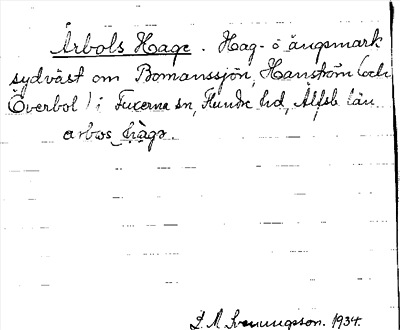 Årbols Hage. Hag- o ängsmark
sydväst om Bomanssjön, Hanström (och
Överbol) i Fuxerna sn, Flundre hd, Älfsb län
arbos hage.
L. M. Svenungsson. 1934.